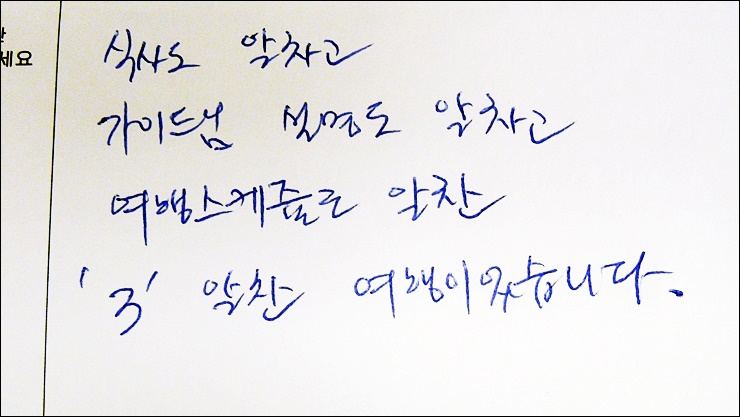 세요
식사도 알차고
가이드님 설명도 알차고
여행스케쥴도 알찬
'3' 알찬 여행이었습니다.